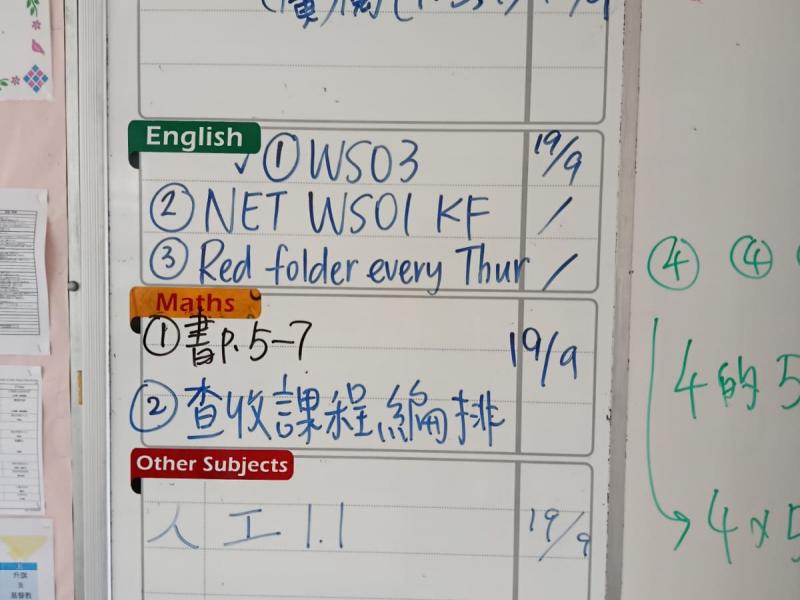 English
✓ ① WS03 19/9
② NET WS01 KF /
③ Red folder every Thur /
Maths
① 書p. 5-7 19/9
② 查收課程編排
Other Subjects
人工1.1 19/9
④ ④
4的5
4×5